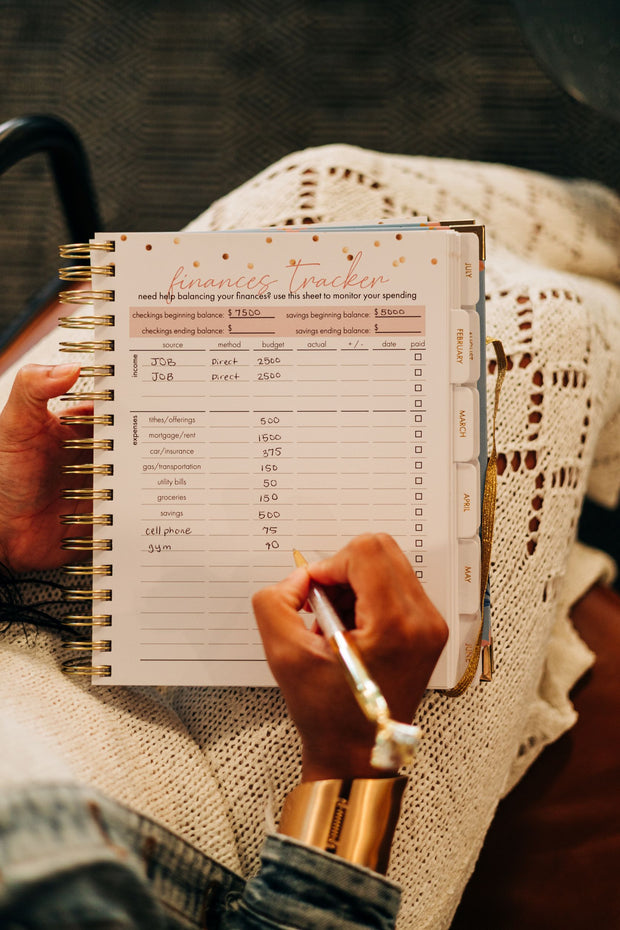 finances Tracker
need help balancing your finances? use this sheet to monitor your spending
checkings beginning balance: $ 7500 savings beginning balance: $ 5000
checkings ending balance: $ savings ending balance: $
source method budget actual + / - date paid
income
JOB Direct 2500
JOB Direct 2500
expenses
tithes/offerings 500
mortgage/rent 1500
car/insurance 375
gas/transportation 150
utility bills 50
groceries 150
savings 500
cell phone 75
gym 90
JULY
FEBRUARY
MARCH
APRIL
MAY